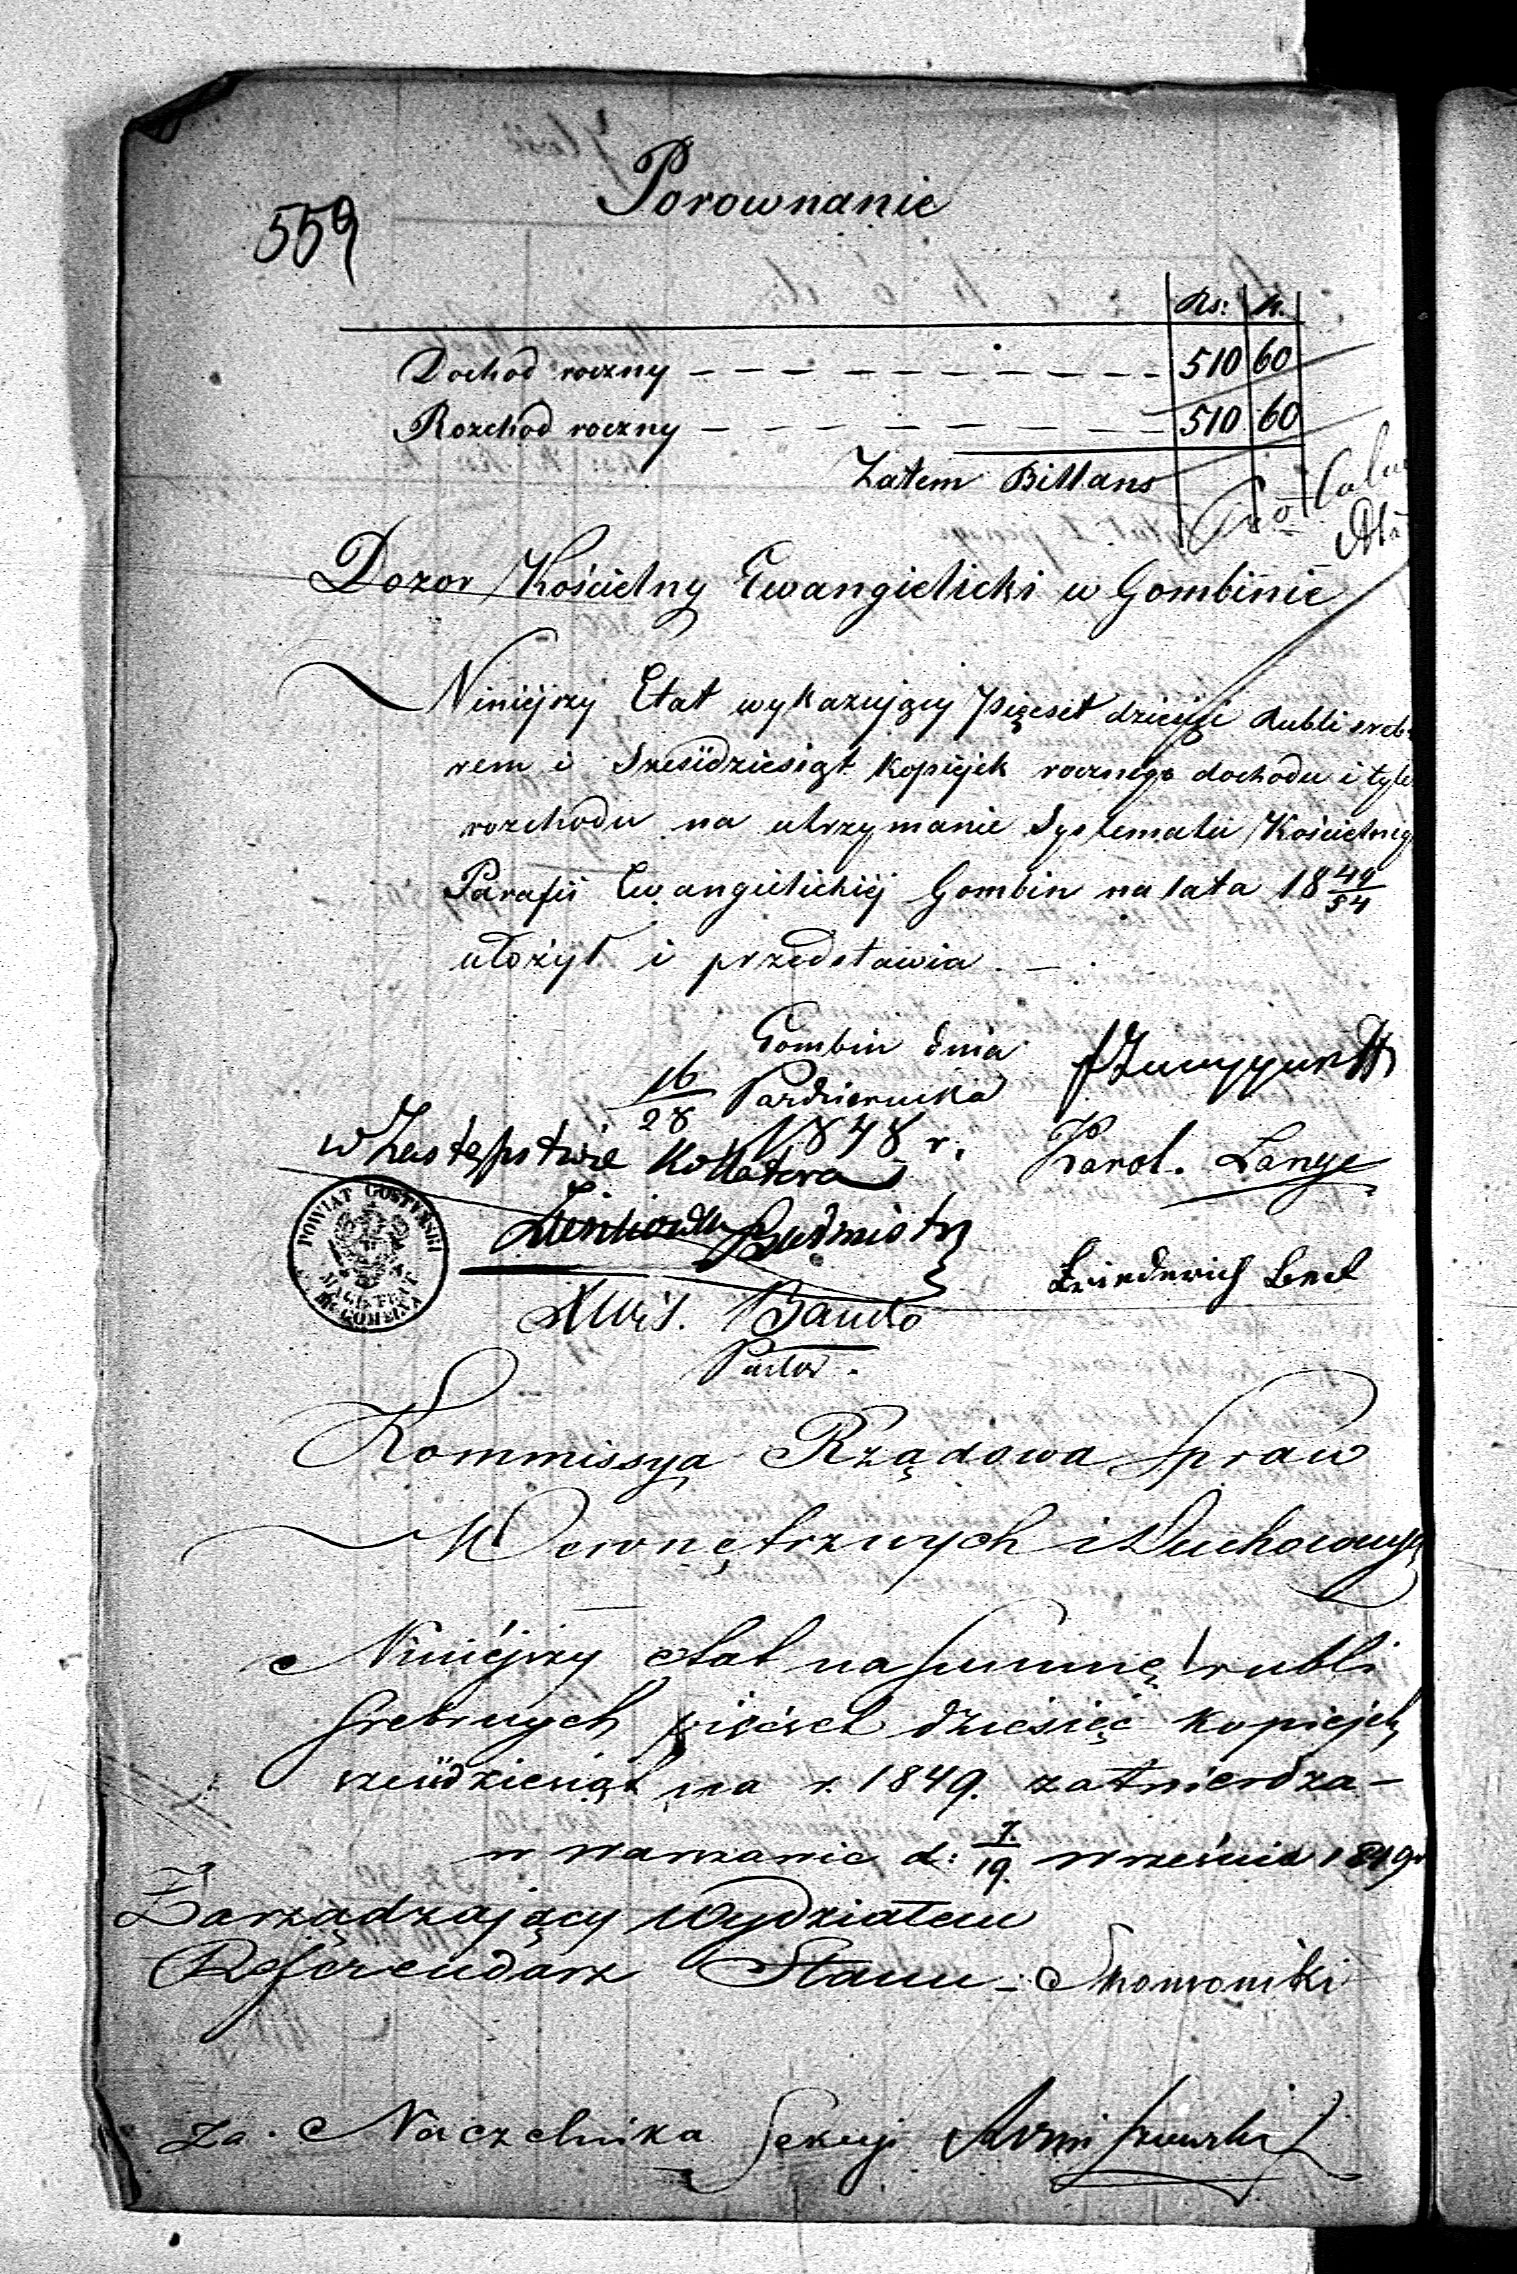 Porownanie
559
Rs: k.
Dochod roczny — — — — — — — — — 510 60
Rozchod roczny — — — — — — — — — 510 60
Zatem Billans
Dozor Kościelny Ewangielicki w Gombinie
Niniejszy Etat wykazuiący pięcset dziesięć Rubli sreb
rem i Sześćdziesiąt kopiejek rocznego dochodu i tyle
rozchodu na utrzymanie Systematu Kościelnego
Parafii Ewangielickiej Gombin na lata 18 49/54
ułożył i przedstawia. —
Gombin dnia
16/28 Pazdziernika
1848 r.
w Zastępstwie Kollatora
Karol. Lange
Burmistrz
POWIAT GOSTYNSKI
MAGISTRAT
M. GOMBINA
Friederich
Pastor.
Kommissya Rządowa Spraw
Wewnętrznych i Duchownych
Niniejszy etat na summę rubli
srebrnych pięćset dziesięć kopiejek
sześćdziesiąt na r. 1849. zatwierdza —
w Warszawie d: 7/19. Września 1849 r
Zarządzający Wydziałem
Referendarz Stanu — Skowroński
za. Naczelnika Sekcyi